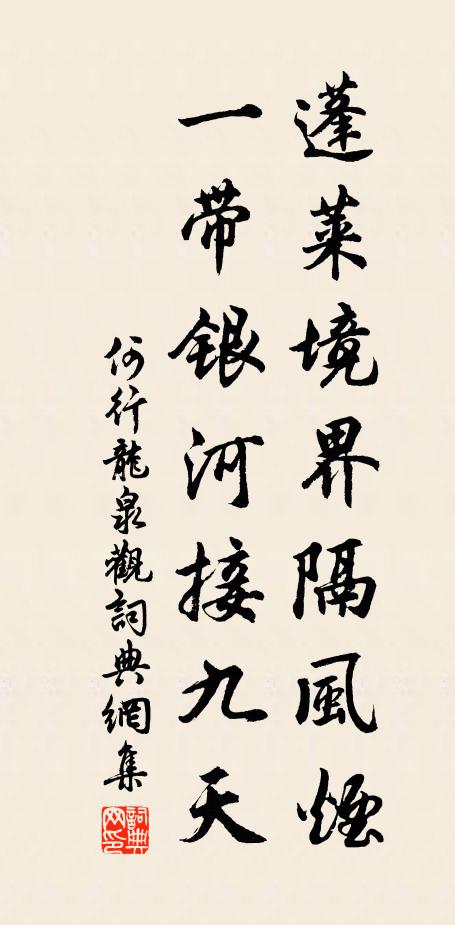 蓬萊境界隔風煙
一帶銀河接九天
何行龍泉觀詞典網集
詞典
网印